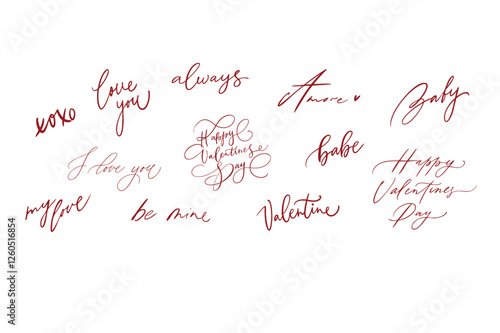 xoxo
love
you
always
Amore
Baby
I love you
Happy
Valentines
Day
babe
Happy
Valentines
Day
my love
be mine
Valentine
Adobe Stock | #1260516854